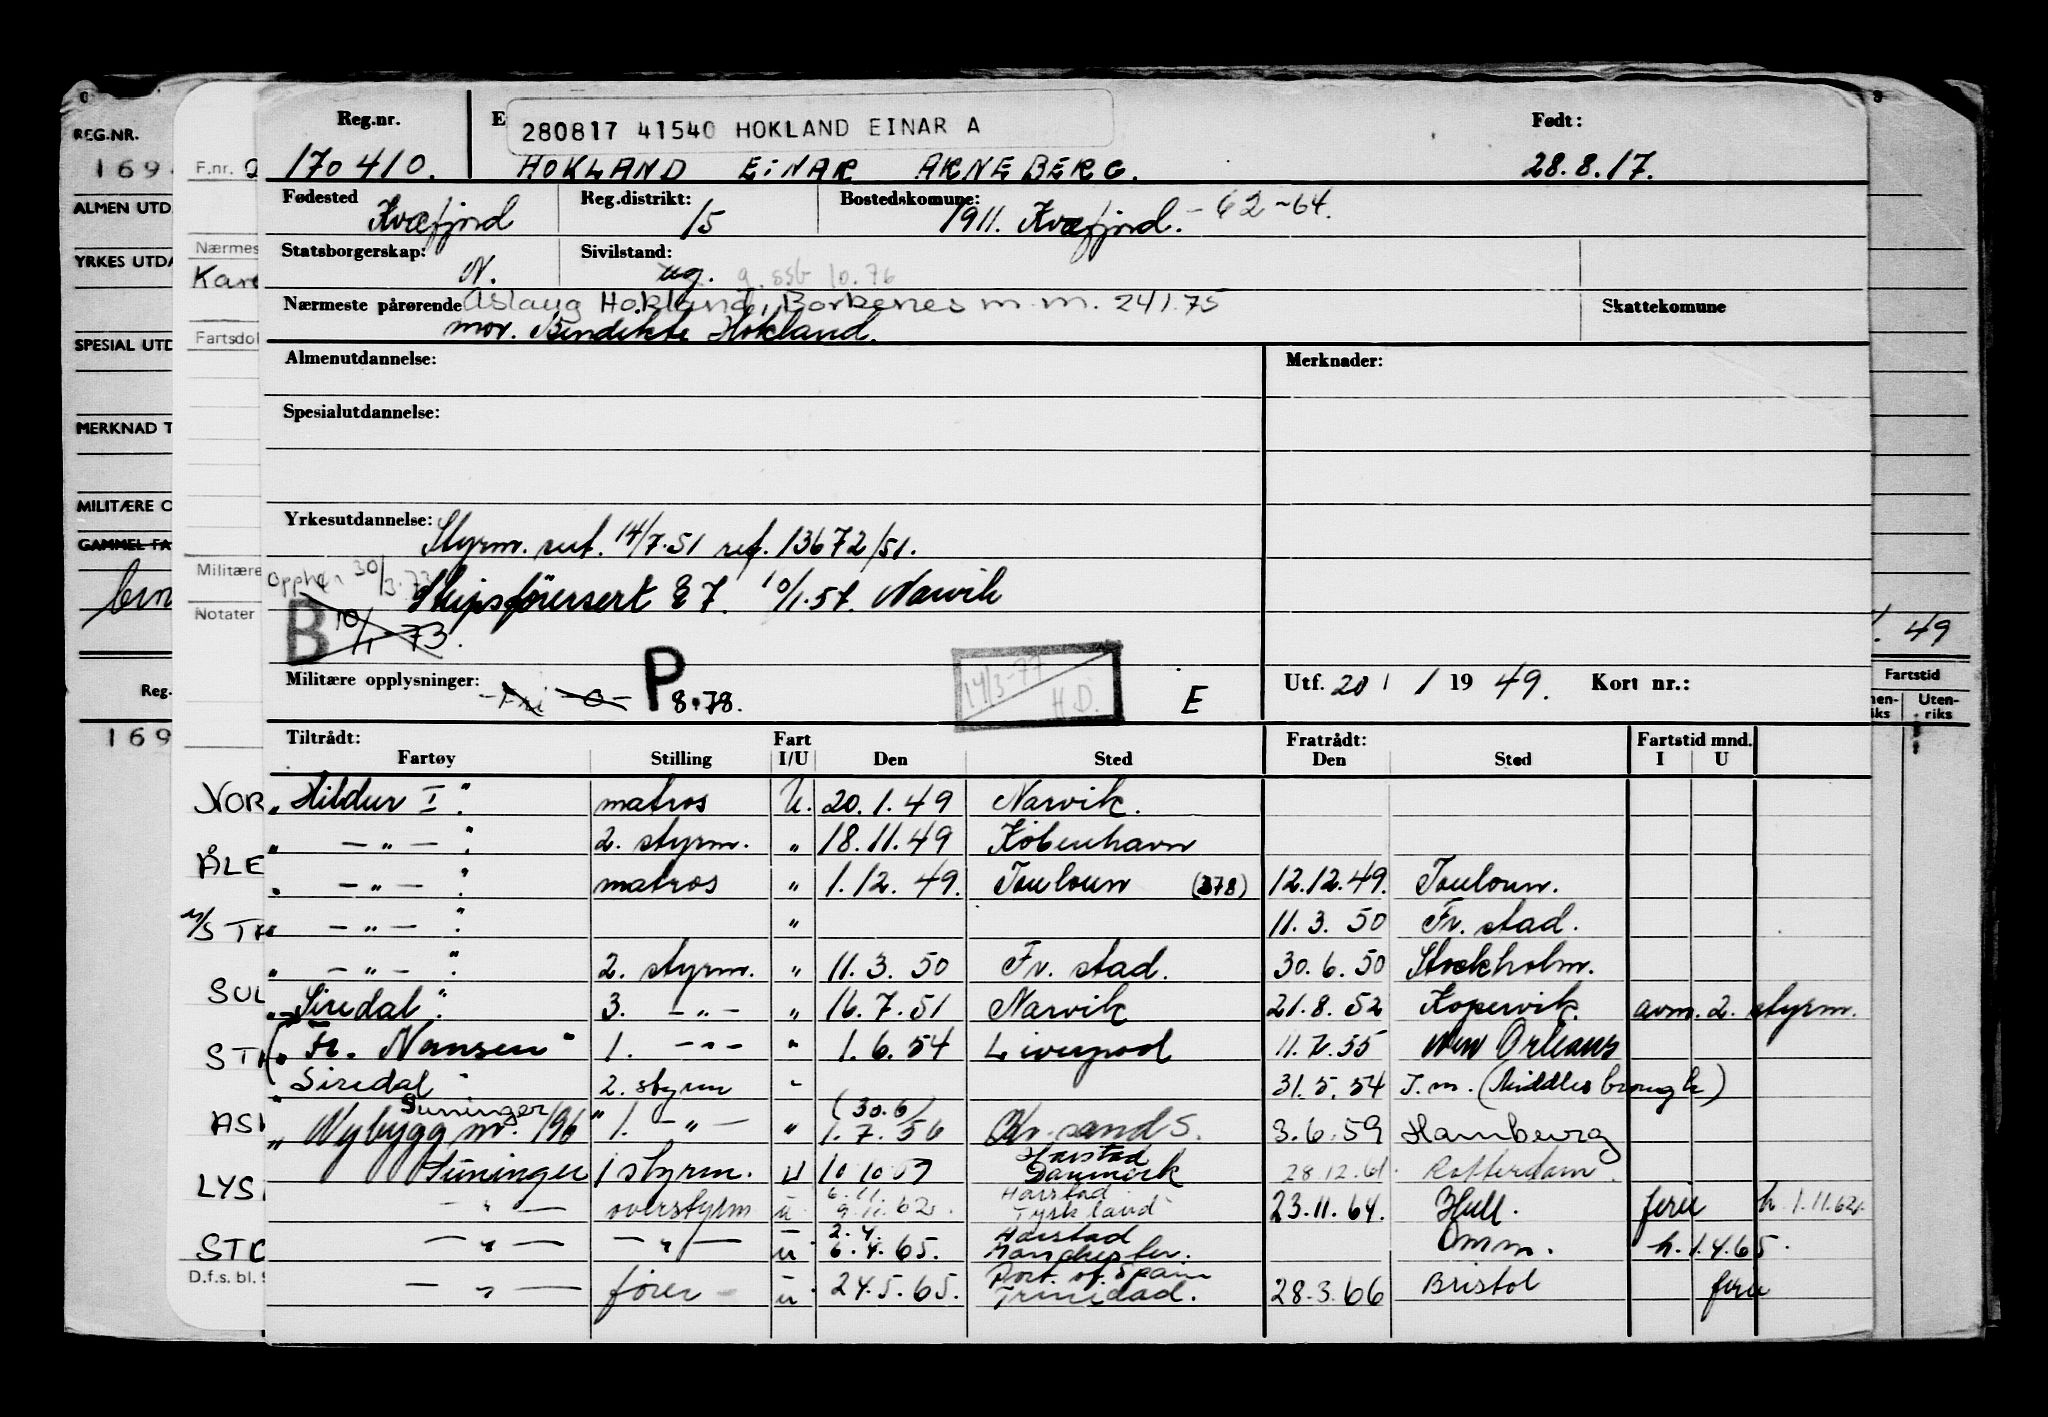 Reg.nr.
280817 41540 HOKLAND EINAR A
Født:
170410.
HOKLAND EINAR ARNEBERG.
28.8.17.
Fødested
Kvæfjord
Reg.distrikt:
15
Bostedskomune:
1911. Kvæfjord. - 62-64.
Statsborgerskap:
N.
Sivilstand:
ug. g. ssb 10.76
Nærmeste pårørende Aslaug Hokland, Borkenes m.m. 241.75
mor. Bendikte Hokland.
Skattekomune
Almenutdannelse:
Merknader:
Spesialutdannelse:
Yrkesutdannelse:
Styrm. sert. 14/7.51 ref. 13672/51.
30/3.73
Skipsførersert E7. 10/1.57. Narvik
B 10/11-73.
Militære opplysninger:
P 8.78.
14/3-77
H.D.
E
Utf. 20 / 1 19 49. Kort nr.:
Tiltrådt:
Fart
Fratrådt:
Fartstid mnd.
Fartøy Stilling I/U Den Sted Den Sted I U
"Hildur I". matros U. 20.1.49 Narvik.
" — " — ". 2. styrm. " 18.11.49 København
" — " — ". matros " 1.12.49. Touloun (378) 12.12.49. Touloun.
" — " — ". " 11.3.50 Fr. stad.
" — " — ". 2. styrm. " 11.3.50 Fr. stad. 30.6.50 Stockholm.
"Siredal". 3. — " — " 16.7.51 Narvik 21.8.52 Kopervik. avm. 2. styrm.
"Fr. Nansen" 1. — " — " 1.6.54 Liverpool 11.7.55 New Orleans
"Siredal" 2. styrm " 31.5.54 T.m. (Middlesbrough)
Suninger (30.6)
"Nybygg nr. 196" 1. — " — " 1.7.56 Kr.sand S. 3.6.59 Hamburg
Harstad
Suninger 1 styrm. U 10 10 59 Danmark 28.12.61. Rotterdam.
6.11. Harstad
— " — overstyrm u 9.11.62. Tyskland 23.11.64. Hull. ferie h. 1.11.62.
2.4. Harstad
— " — — " — u 6.4.65. Manchester. Omm. h. 1.4.65.
Port of Spain
— " — fører u 24.5.65. Trinidad. 28.3.66 Bristol ferie
REG.NR.
169
ALMEN UTD.
YRKES UTDA
SPESIAL UTD
MERKNAD T
MILITÆRE O
GAMMEL FA
Reg.
169
F.nr.
Nærmes
Kare
Fartsdol
Militære
Notater
NOR
ÅLE
M/S TH
SUL
STH
ASK
LYS
STO
D.f.s. bl.
49
Fartstid
Uten-
riks